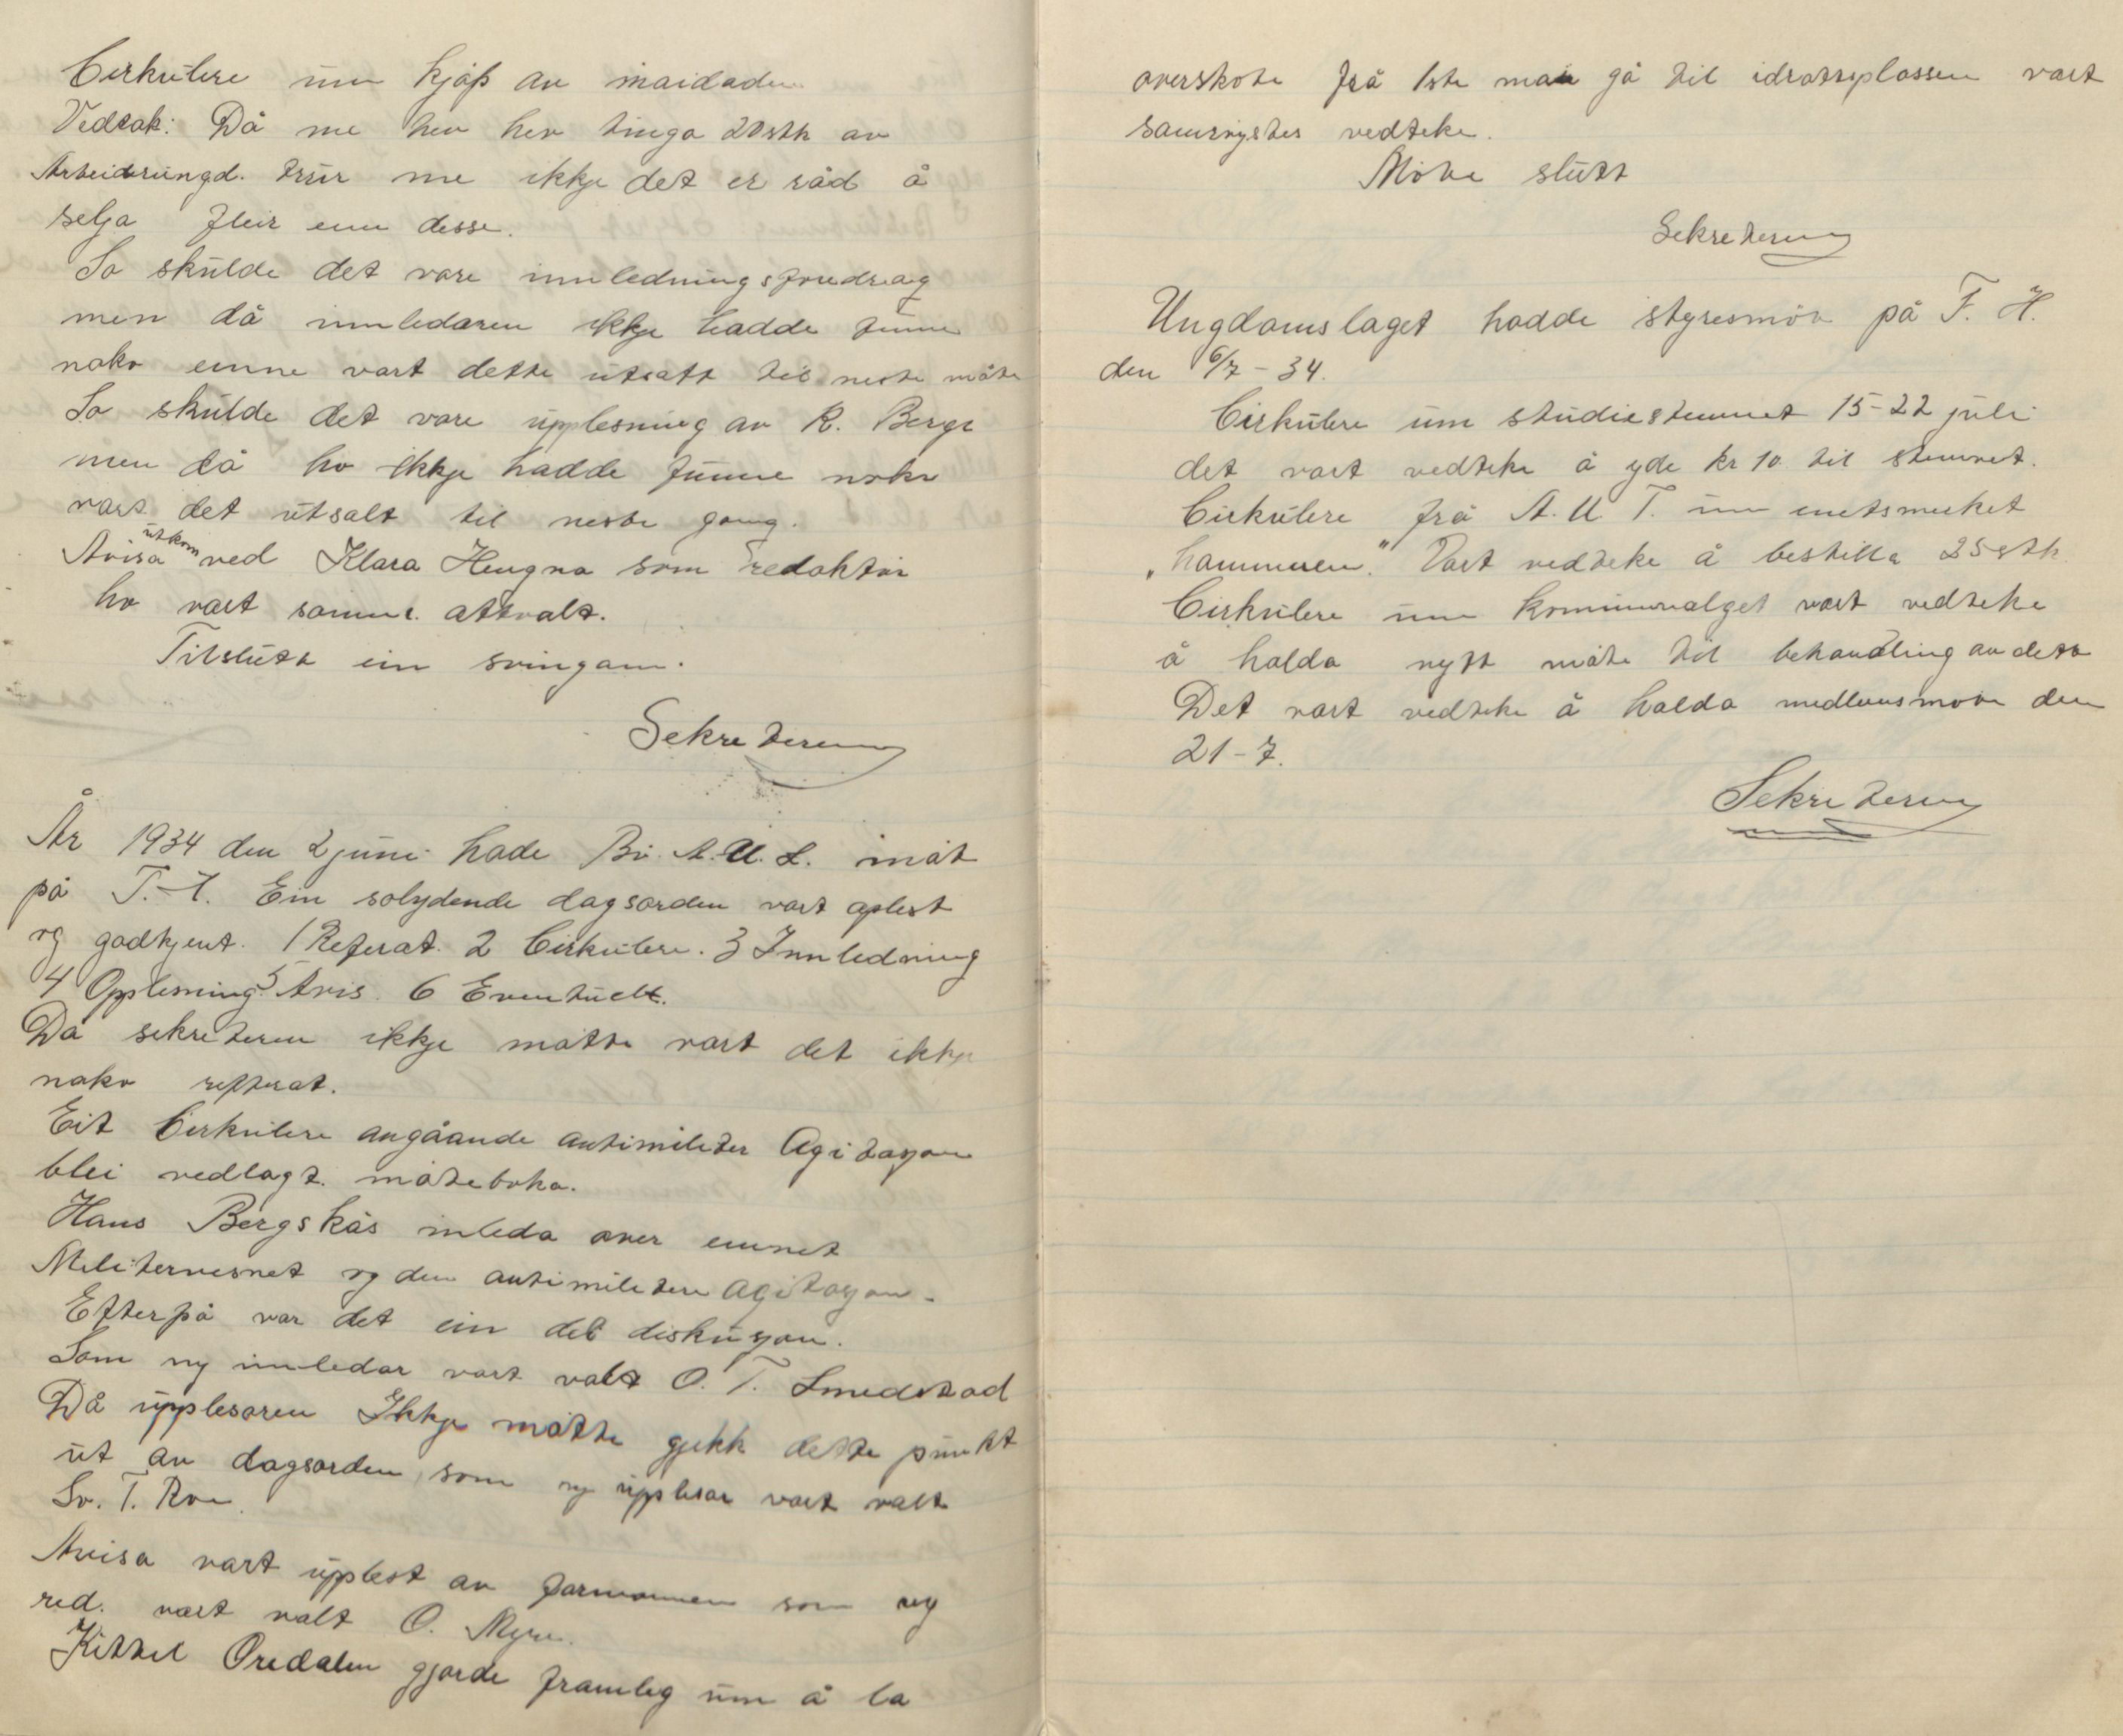 Cirkulere um kjøp av maidaden
Vedtak: Då me hev hev tinga 20 stk av
Arbeidarungd. trur me ikkje det er råd å
selja fleir enn desse.
So skulde det vare innledningsforedrag
men då innledaren ikkje hadde funne
noko emne vart dette utsatt til neste møte
So skulde det vare upplesning av R. Berge
men då ho ikkje hadde funne noko
vart det utsalt til neste gong.
Avisa utkom ved Klara Haugna som redaktør
ho vart samr. attvalt.
Tilslutt ein svingom.
Sekreteren
År 1934 den 2 juni hade Bø. A.U.L. møt
på T.H. Ein solydende dagsorden vart oplest
og godkjent. 1 Referat. 2 Cirkulere. 3 Innledning
4 Opplesning 5 Avis. 6 Eventuelt.
Då sekreteren ikkje møtte vart det ikkje
noko refferat.
Eit Cirkulere angåande antimiliter Agitasjon
blei vedlagt møteboka.
Hans Bergskås inleda over emnet
Militervesnet og den antimilitere agitasjon.
Efterpå var det ein del diskusjon.
Som ny innledar vart valt O. T. Smedstad
Då upplesaren Ikkje møtte gjekk dette punkt
ut av dagsorden, som ny upplesar vart valt
Sv. T. Roe.
Avisa vart upplest av formannen som ny
red. vart valt O. Myre.
Kittel Oredalen gjorde framleg um å la
overskote frå 1ste mai gå til idrotsplassen vart
samrøystes vedteke.
Møte slutt
Sekreteren
Ungdomslaget hadde styresmøte på F. H.
den 6/7 - 34.
Cirkulere um studiestemnet 15-22 juli
det vart vedteke å yde kr 10 til stemnet.
Cirkulere frå A. U. F. um enetsmerket
„hammeren." Vart vedteke å bestilla 25 stk
Cirkulere um kommunvalget vart vedteke
å halda nytt møte til behandling av dette
Det vart vedteke å halda medlemsmøte den
21-7.
Sekreteren